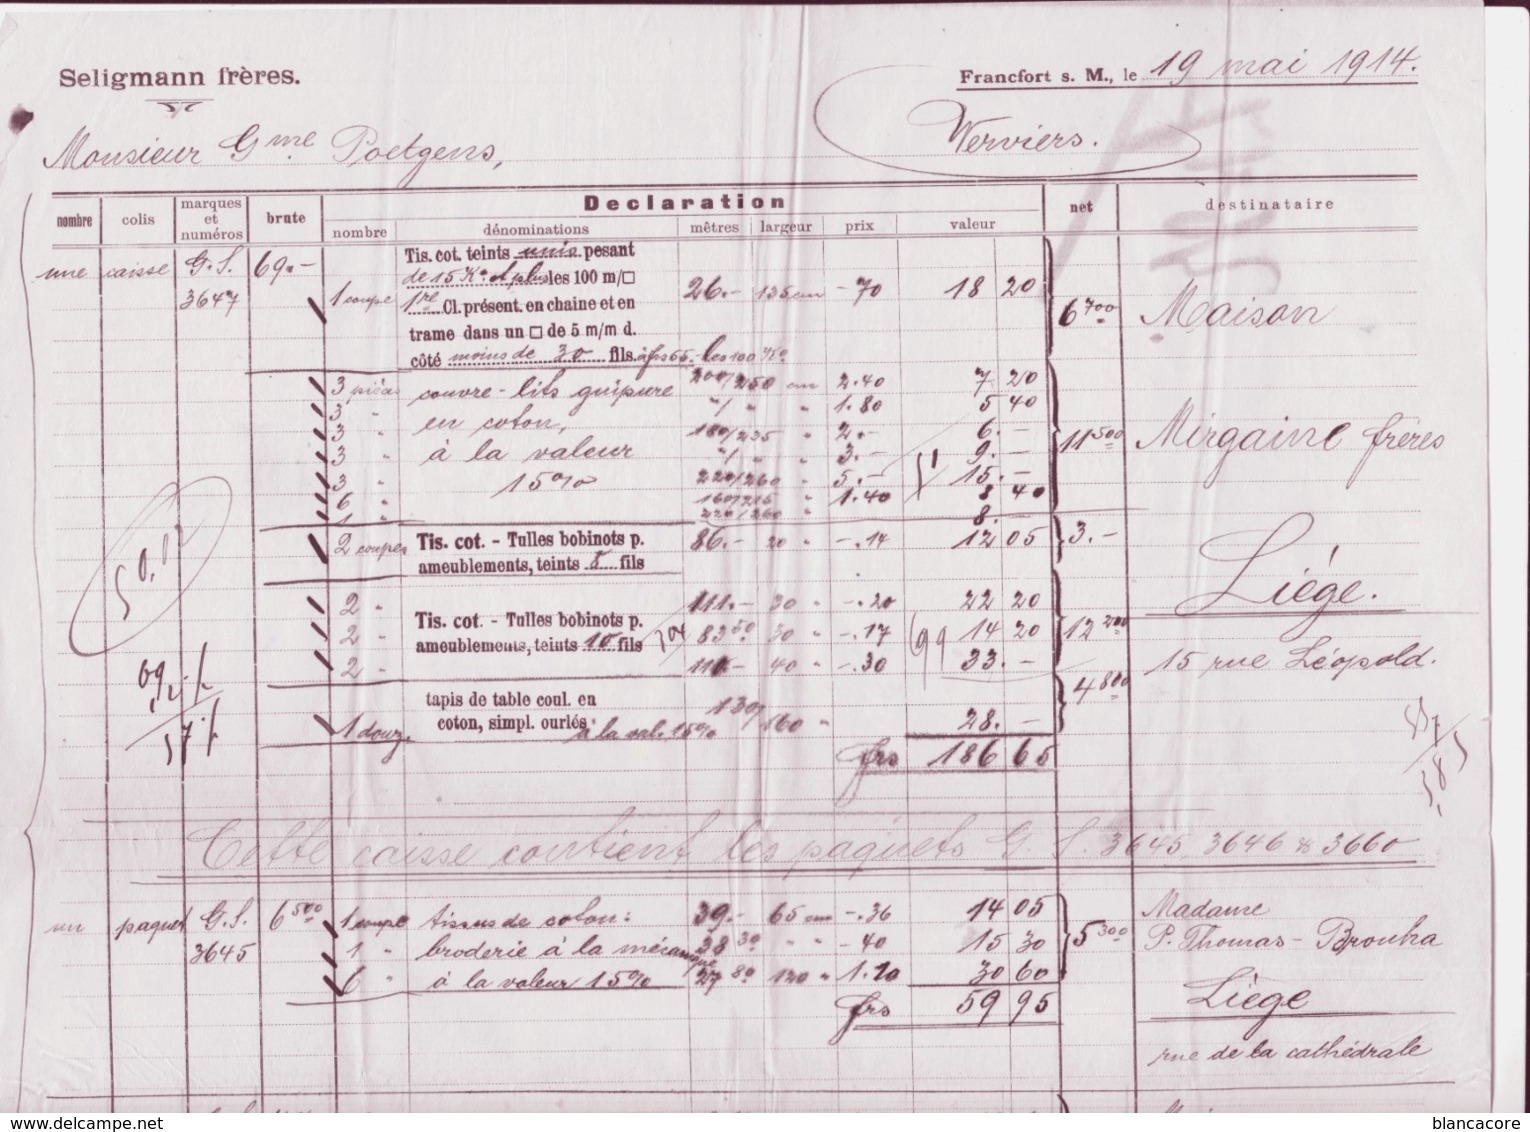 Seligmann frères.
Francfort s. M., le 19 mai 1914.
Monsieur Gme Poetgens,
Verviers.
nombre colis marques et numéros brute Declaration net destinataire
nombre dénominations mètres largeur prix valeur
une caisse G.S. 69.- Tis. cot. teints unis pesant
3647 de 15 Ko et plus les 100 m/□
1 coupe 1re Cl. présent. en chaine et en 26.- 135 cm -70 18 20 6 700 Maison
trame dans un □ de 5 m/m d.
côté moins de 30 fils. à frs 55.- les 100 Ko
3 pièces couvre-lits guipure 200/250 cm 2.40 7 20
3 " en coton, "/" " 1.80 5 40
3 " 180/235 " 2.- 6.- 11 500 Mirgaine frères
3 " à la valeur "/" " 3.- 9.-
3 " 15% 220/260 " 5.- 15.-
6 " 160/215 " 1.40 8 40
1 " 220/260 " 8.-
2 coupes Tis. cot. - Tulles bobinots p. 86.- 20 " -.14 12 05 3.-
ameublements, teints 5 fils
Liége.
2 " Tis. cot. - Tulles bobinots p. 111.- 30 " -.20 22 20
2 " ameublements, teints 10 fils 83 50 30 " -.17 14 20 12 200
2 " 110.- 40 " -.30 33.-
15 rue Léopold.
tapis de table coul. en 4 800
1 douz. coton, simpl. ourlés. à la val. 15% 130/160 " 28.-
frs 186 65
Cette caisse contient les paquets G. S. 3645, 3646 & 3660
un paquet G.S. 6 500 1 coupe tissus de coton: 39.- 65 cm -.36 14 05 Madame
3645 1 " broderie à la mécanique 38 30 " " -40 15 30 5 300 P. Thomas-Brouha
6 " à la valeur 15% 27 80 120 " 1.10 30 60
frs 59 95 Liège
rue de la cathédrale
blancacore